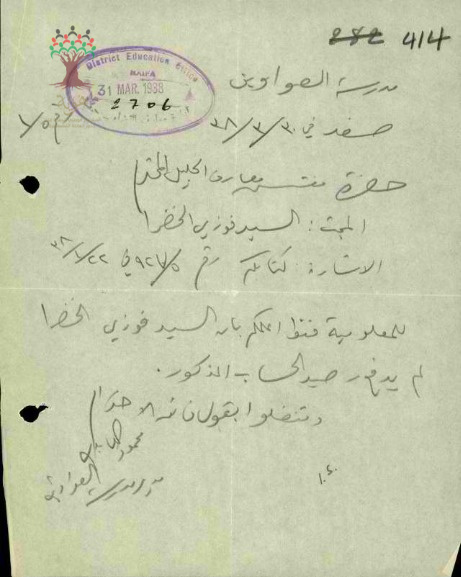 282 414
District Education Office
HAIFA
31 MAR. 1938
2706
مدرسة الصواوين
صفد في ٣٠/٣/٣٨
حضرة مفتش معارف الجليل المحترم
المبحث: السيد فوزي الخضرا
الاشارة: كتابكم رقم في
للمعلومية فقط اعلمكم بان السيد فوزي الخضرا
لم يدفع رصيد الحساب المذكور.
وتفضلوا بقبول فائق الاحترام
محمود
مدير مدرسة الصواوين